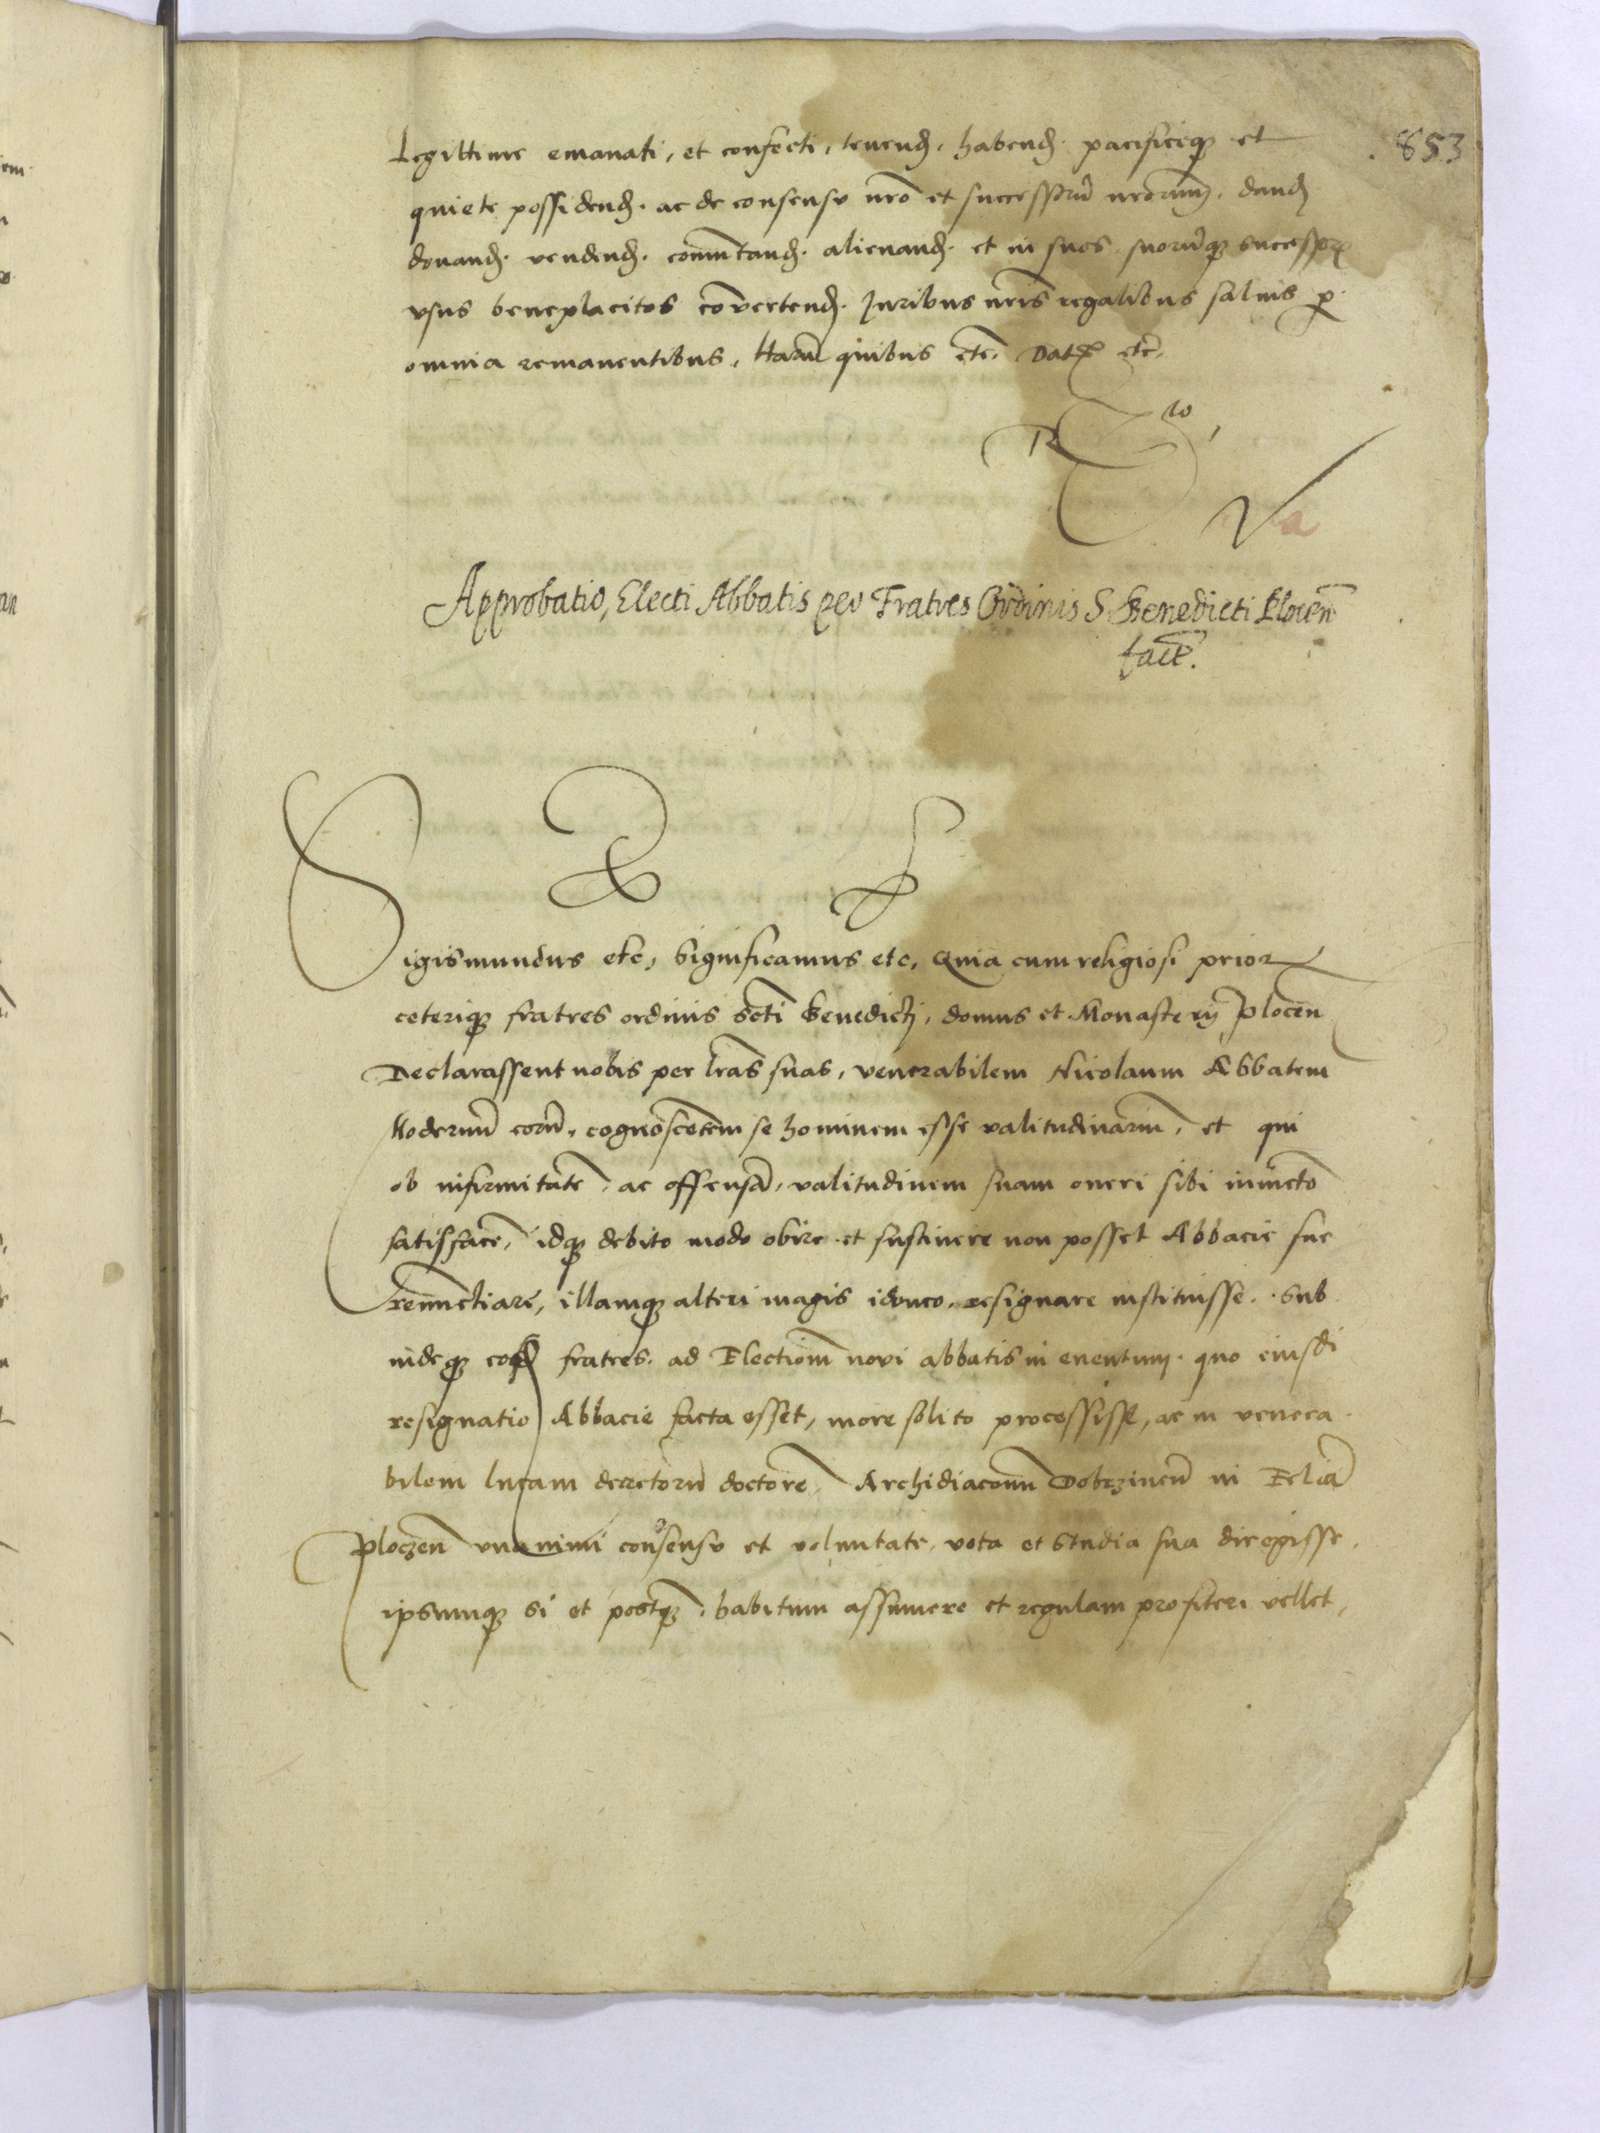 853
Legittime emanati, et confecti, tenend, habend. pacificeq et
quiete possidend. ac de consensu nro et successorũ nrorum. dand
donand. vendend. comutand. alienand. et in suos suorũq successor
usus beneplacitos cõvertend. Juribus nris regalibus salvis p
omnia remanentibus. Harũ quibus etc. Dat etc.
Approbatio, Electi Abbatis per Fratres Ordinis S. Benedicti Plocen
fact.
Sigismundus etc, Significamus etc, Quia cum religiosi prior
ceteriq fratres ordinis Scti Benedicti, domus et Monasterij Plocen
Declarassent nobis per lras suas, venerabilem Nicolaum Abbatem
Modernũ eorũ, cognoscẽtem se hominem esse valitudinariũ, et qui
ob infirmitatẽ, ac offensã, valitudinem suam oneri sibi iniũcto
satisfacẽ, idq debito modo obire et sustinere non posset Abbacie sue
renũctiarẽ, illamq alteri magis idoneo, resignare instituisse. Sub
indeq eosd fratres. ad Electionẽ novi abbatis in eventum. quo eiusdẽ
resignatio Abbacie facta esset, more solito processisse, ac in venera
bilem lucam decretorũ doctorẽ, Archidiaconũ Dobrzinen in Ecclia
Ploczen unanimi cosensu et voluntate, vota et Studia sua diregisse,
ipsumq si et postq, habitum assumere et regulam profiteri vellet,